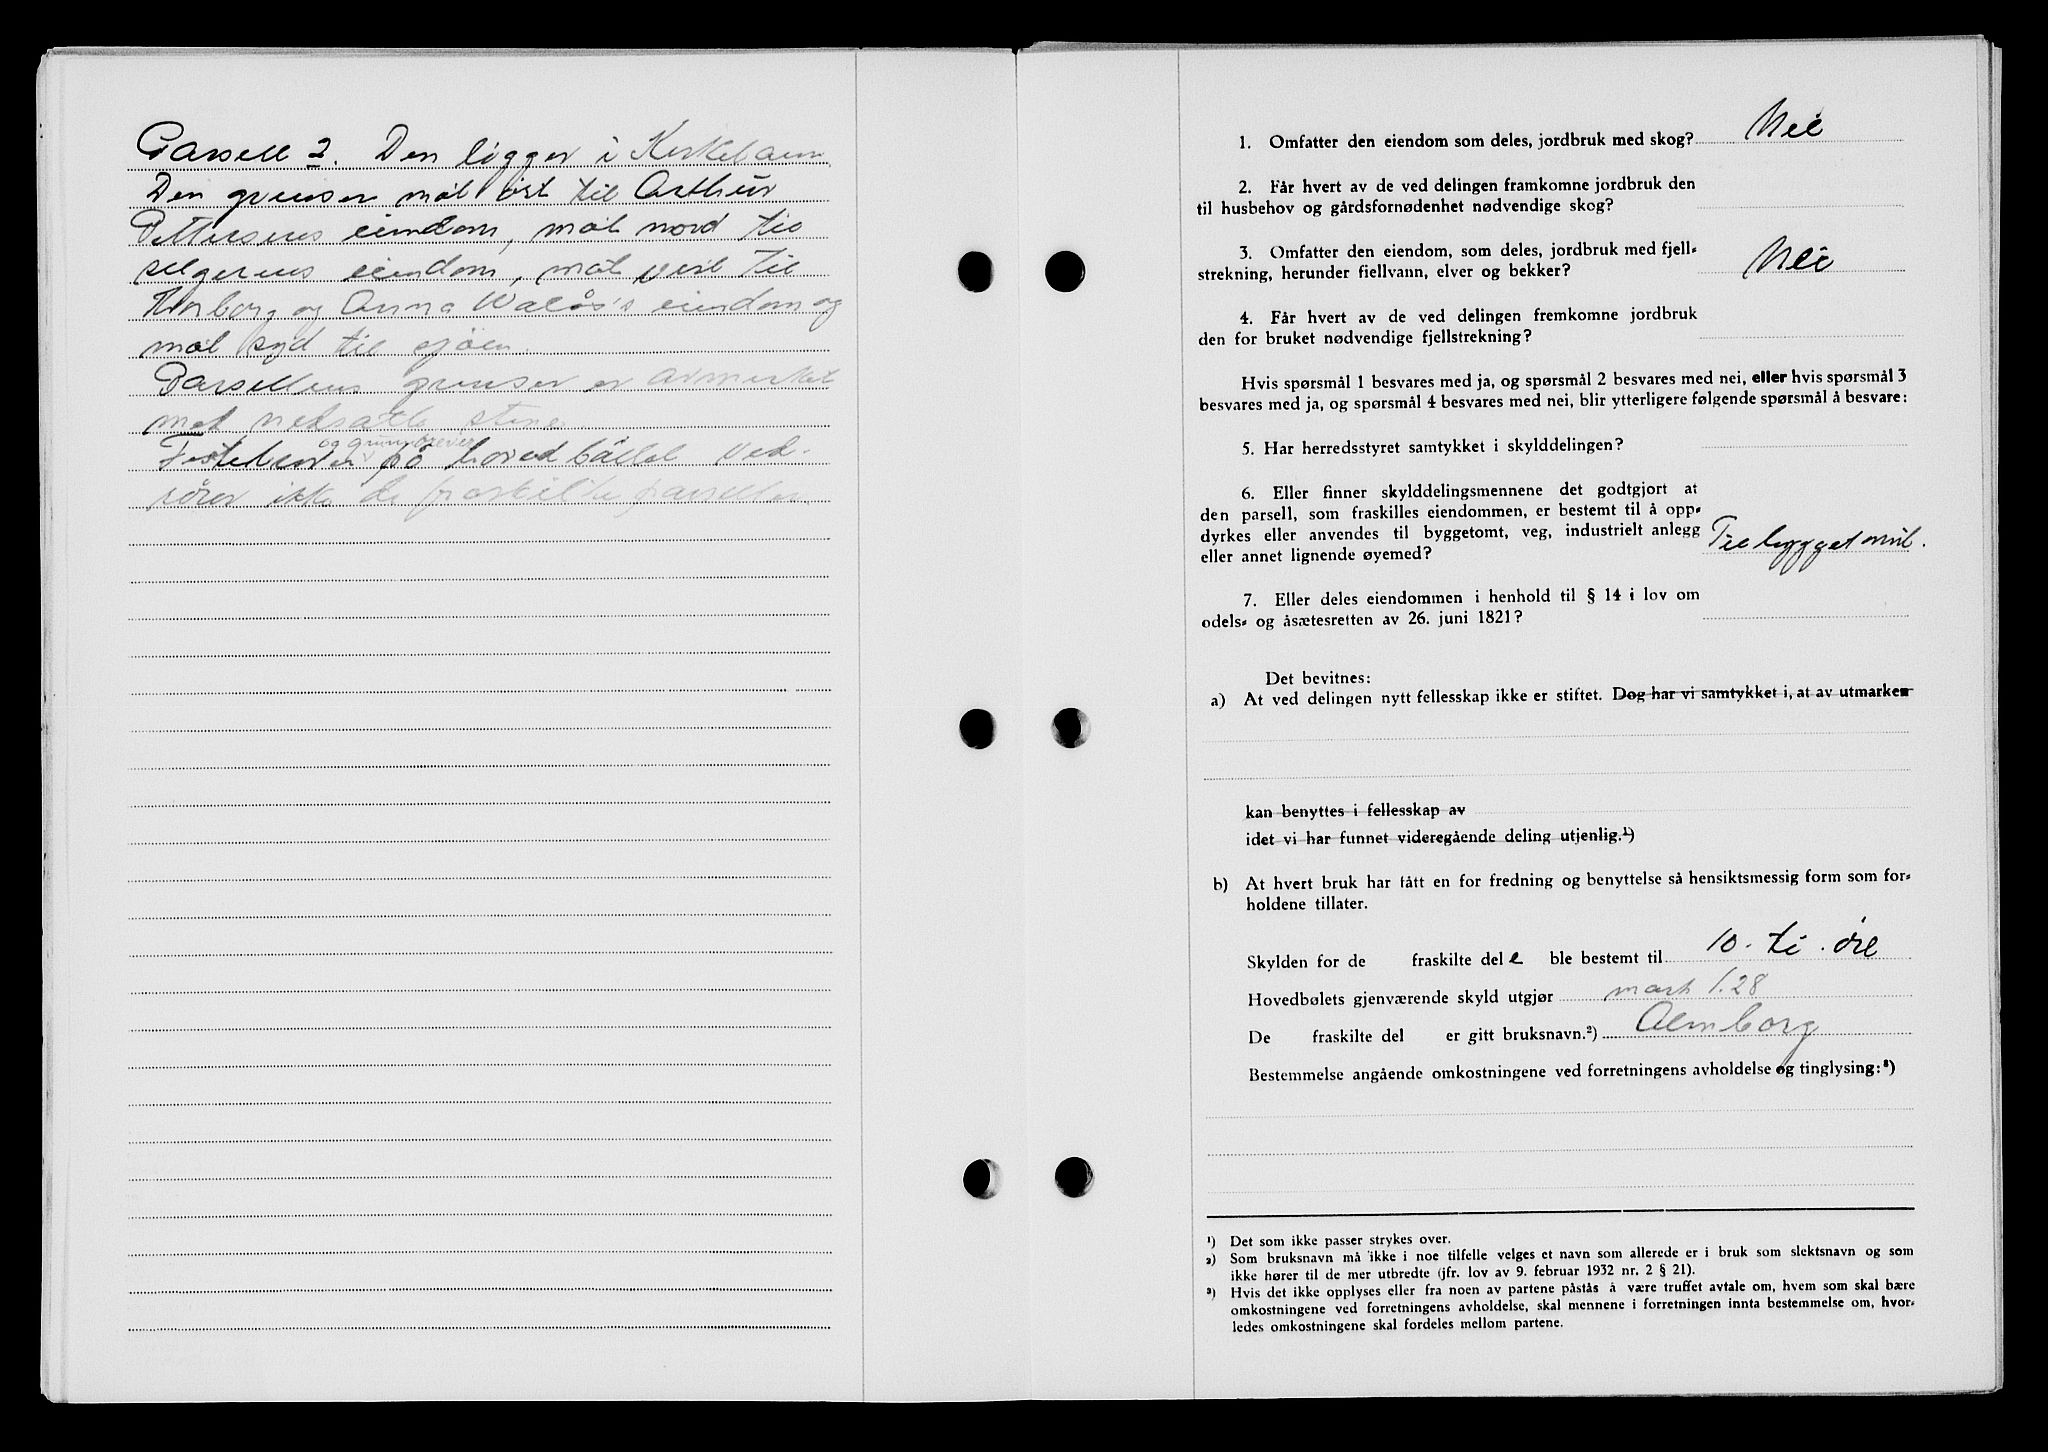 Parsell 2. Den ligger i
Den grenser mot øst til Arthur
Pettersens eiendom, mot nord til
selgerens eiendom, mot vest til
Thorborg og Anna Walås's eiendom og
mot syd til sjøen.
Parsellens grenser er avmerket
med nedsatte stener.
og grunnbrever
Festebreven på hovedbøllet ved-
rører ikke de fraskilte parseller.
1. Omfatter den eiendom som deles, jordbruk med skog? Nei
2. Får hvert av de ved delingen framkomne jordbruk den
til husbehov og gårdsfornødenhet nødvendige skog?
3. Omfatter den eiendom, som deles, jordbruk med fjell-
strekning, herunder fiellvann, elver og bekker? Nei
4. Får hvert av de ved delingen fremkomne jordbruk
den for bruket nødvendige fjellstrekning?
Hvis spørsmål 1 besvares med ja, og spørsmål 2 besvares med nei, eller hvis spørsmål 3
besvares med ja, og spørsmål 4 besvares med nei, blir ytterligere følgende spørsmål å besvare:
5. Har herredsstyret samtykket i skylddelingen?
6. Eller finner skylddelingsmennene det godtgjort at
den parsell, som fraskilles eiendommen, er bestemt til å opp-
dyrkes eller anvendes til byggetomt, veg, industrielt anlegg
eller annet lignende øyemed? Til bygget omt.
7. Eller deles eiendommen i henhold til § 14 i lov om
odels- og åsætesretten av 26. juni 1821?
Det bevitnes:
a) At ved delingen nytt fellesskap ikke er stiftet. Dog har vi samtykket i, at av utmarken
kan benyttes i fellesskap av
idet vi har funnet videregående deling utjenlig.¹)
b) At hvert bruk har fått en for fredning og benyttelse så hensiktsmessig form som for-
holdene tillater.
Skylden for de fraskilte del e ble bestemt til 10. ti. øre
Hovedbølets gjenværende skyld utgjør mark 1.28
De fraskilte del er gitt bruksnavn.²) Almborg
Bestemmelse angående omkostningene ved forretningens avholdelse og tinglysing:³)
¹) Det som ikke passer strykes over.
²) Som bruksnavn må ikke i noe tilfelle velges et navn som allerede er i bruk som slektsnavn og som
ikke hører til de mer utbredte (jfr. lov av 9. februar 1932 nr. 2 § 21).
³) Hvis det ikke opplyses eller fra noen av partene påstås å være truffet avtale om, hvem som skal bære
omkostningene ved forretningens avholdelse, skal mennene i forretningen innta bestemmelse om, hvor-
ledes omkostningene skal fordeles mellom partene.